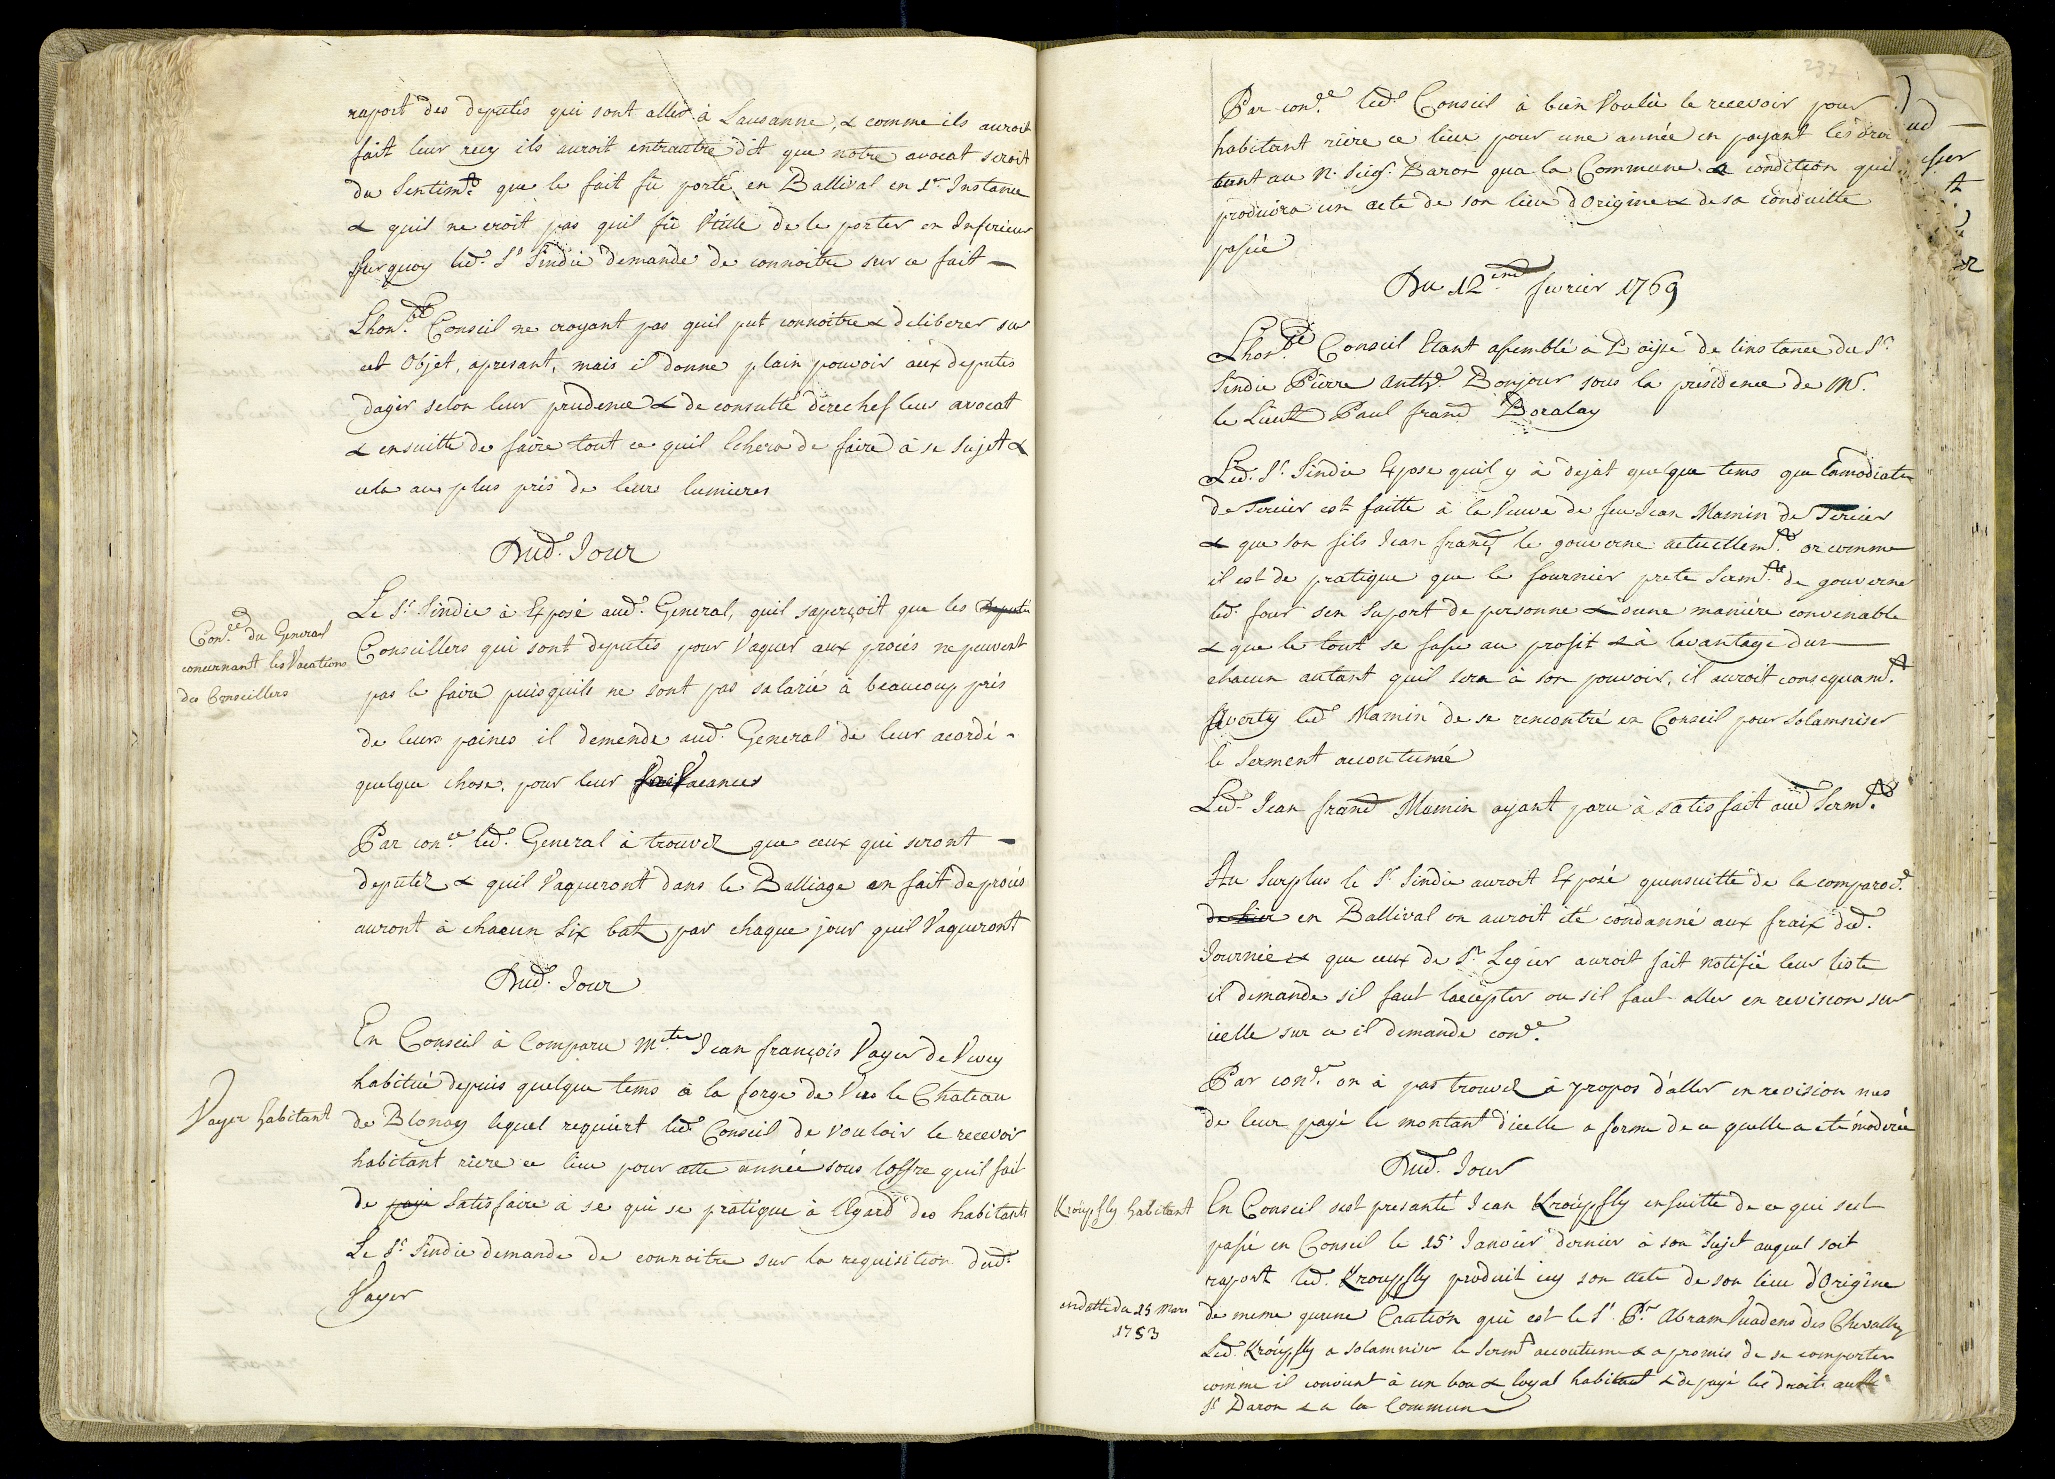 raport des deputés qui sont allés à Lausanne, & comme ils auroit
fait leur recy ils auroit entrautre dit que notre avocat seroit
du sentimt. que le fait fü porté en Ballival en 1re Instance
& quil ne croit pas quil fü Utille de le porter en Inferieur
surquoy led. Sr Sindic demande de connoitre sur ce fait —
Lhonble Conseil ne croyant pas quil put connoitre & deliberer sur
cet Objet, apresant, mais il donne plain pouvoir aux deputes
dagir selon leur prudence & de consulté derechef leur avocat
& ensuitte de faire tout ce quil Echera de faire à se sujet &
cela au plus prés de leurs lumieres
Dud. Jour
Conce du General
concernant les Vacations
des Conseillers
Le Sr. Sindic à Exposé aud. General, quil saperçoit que les deputé
Conseillers qui sont deputés pour Vaquer aux procés ne peuvent
pas le faire puisquils ne sont pas salarié à beaucoup prés
de leurs paines il demende aud. General de leur acordé -
quelque chose, pour leur Vacances
Par conce led. General à trouvez que ceux qui seront —
deputéz & quil Vaqueront dans le Balliage en fait de procés
auront à chacun Six batz par chaque jour quil Vaqueront
Dud. Jour
Vayer habitant
En Conseil à Comparu Mtre Jean françois Vayer de Vevey
habitué depuis quelque tems à la forge de Vers le Chateau
de Blonay lequel requiert led. Conseil de vouloir le recevoir
habitant riere ce lieu pour cette année sous loffre quil fait
de payé Satisfaire à se qui se pratique à lEgard des habitants
Le Sr. Sindic demande de connoitre sur la requisition dud.
Vayer
237
Par conce. led. Conseil à bien Voulu le recevoir pour
habitant riere ce lieu pour une année en payant les droi
tant au N. Seigr. Baron qua la Commune & condition quil
produira un acte de son lieu dOrigine & de sa conduitte
pasée
Du 12eme fevrier 1769
Lhonble Conseil Etant asemblé a Laijié de linstance du Sr.
Sindic Pierre Anthe. Bonjour sous la presidence de Mr.
le Lieut Paul franc Boralay
Led. Sr. Sindic Expose quil y à dejat quelque tems que lamodiation
de Tercier est faitte à la Veuve de feu Jean Mamin de Tercier
& que son fils Jean franc le gouverne actuellemt. or comme
il est de pratique que le fournier prete Sermt. de gouverner
led. four sen suport de personne & dune maniére convenable
& que le tout se fase au profit & à lavantage dun —
chacun autant quil sera à son pouvoir, il auroit consequamt.
averty led Mamin de se rencontré en Conseil pour Solamniser
le Serment accoutumé
Led. Jean franc Mamin ayant paru à satisfait aud Sermt.
Au Surplus le Sr. Sindic auroit Exposé quensuitte de la comparoce.
de hier en Ballival on auroit été condanné aux fraix de d.
Journée & que ceux de St Legier auroit fait notifié leur liste
il demande sil faut laccepter ou sil faut aller en revision sur
icelle sur ce il demande conce.
Par conce. on à pas trouvez à propos d'aller en revision mes
de leur payé le montant d'icelle a forme de ce quelle a eté moderée
Dud. Jour
Kroúpfly habitant
En Conseil sest presanté Jean Kroúpfly ensuitte de ce qui sest
pasé en Conseil le 15e Janvier dernier à son Sujet auquel soit
raport led. Kroupfly produit icy son acte de son lieu d'Origine
en datte du 15 Mars
1753
de meme qu'une Caution qui est le Sr. Pre. Abram Vuadens des Chevalley
Led. Kroúpfly a solamnisé le Sermt accoutumé & a promis de se comporter
comme il convient à un bon & loyal habitant & de payé les droits au
Sr Baron & a la Commune